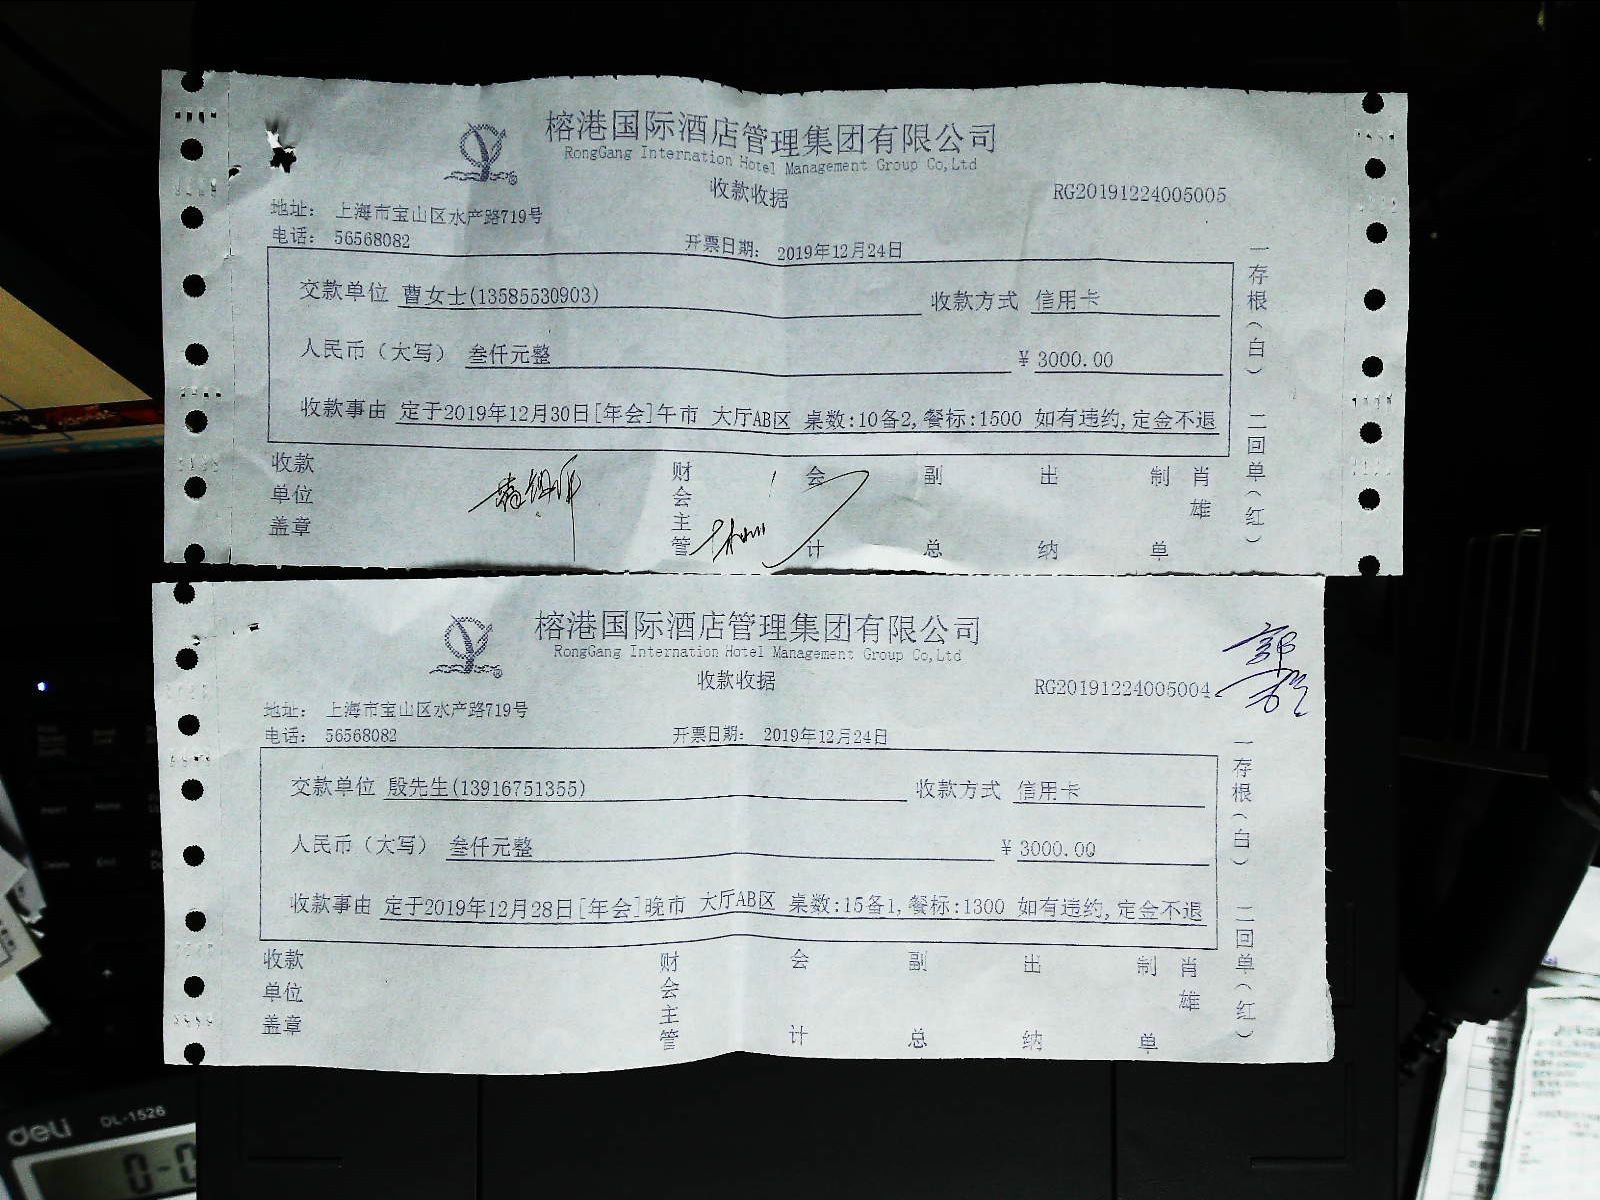 榕港国际酒店管理集团有限公司
RongGang Internation Hotel Management Group Co,Ltd
收款收据
RG20191224005005
地址： 上海市宝山区水产路719号
电话： 56568082
开票日期： 2019年12月24日
交款单位 曹女士(13585530903) 收款方式 信用卡
人民币（大写） 叁仟元整 ¥ 3000.00
收款事由 定于2019年12月30日[年会]午市 大厅AB区 桌数:10备2,餐标:1500 如有违约,定金不退
收款单位盖章 财会主管 会计 副总 出纳 制单 肖雄
一存根(白) 二回单(红)
榕港国际酒店管理集团有限公司
RongGang Internation Hotel Management Group Co,Ltd
收款收据
RG20191224005004
地址： 上海市宝山区水产路719号
电话： 56568082
开票日期： 2019年12月24日
交款单位 殷先生(13916751355) 收款方式 信用卡
人民币（大写） 叁仟元整 ¥ 3000.00
收款事由 定于2019年12月28日[年会]晚市 大厅AB区 桌数:15备1,餐标:1300 如有违约,定金不退
收款单位盖章 财会主管 会计 副总 出纳 制单 肖雄
一存根(白) 二回单(红)
deli DL-1526